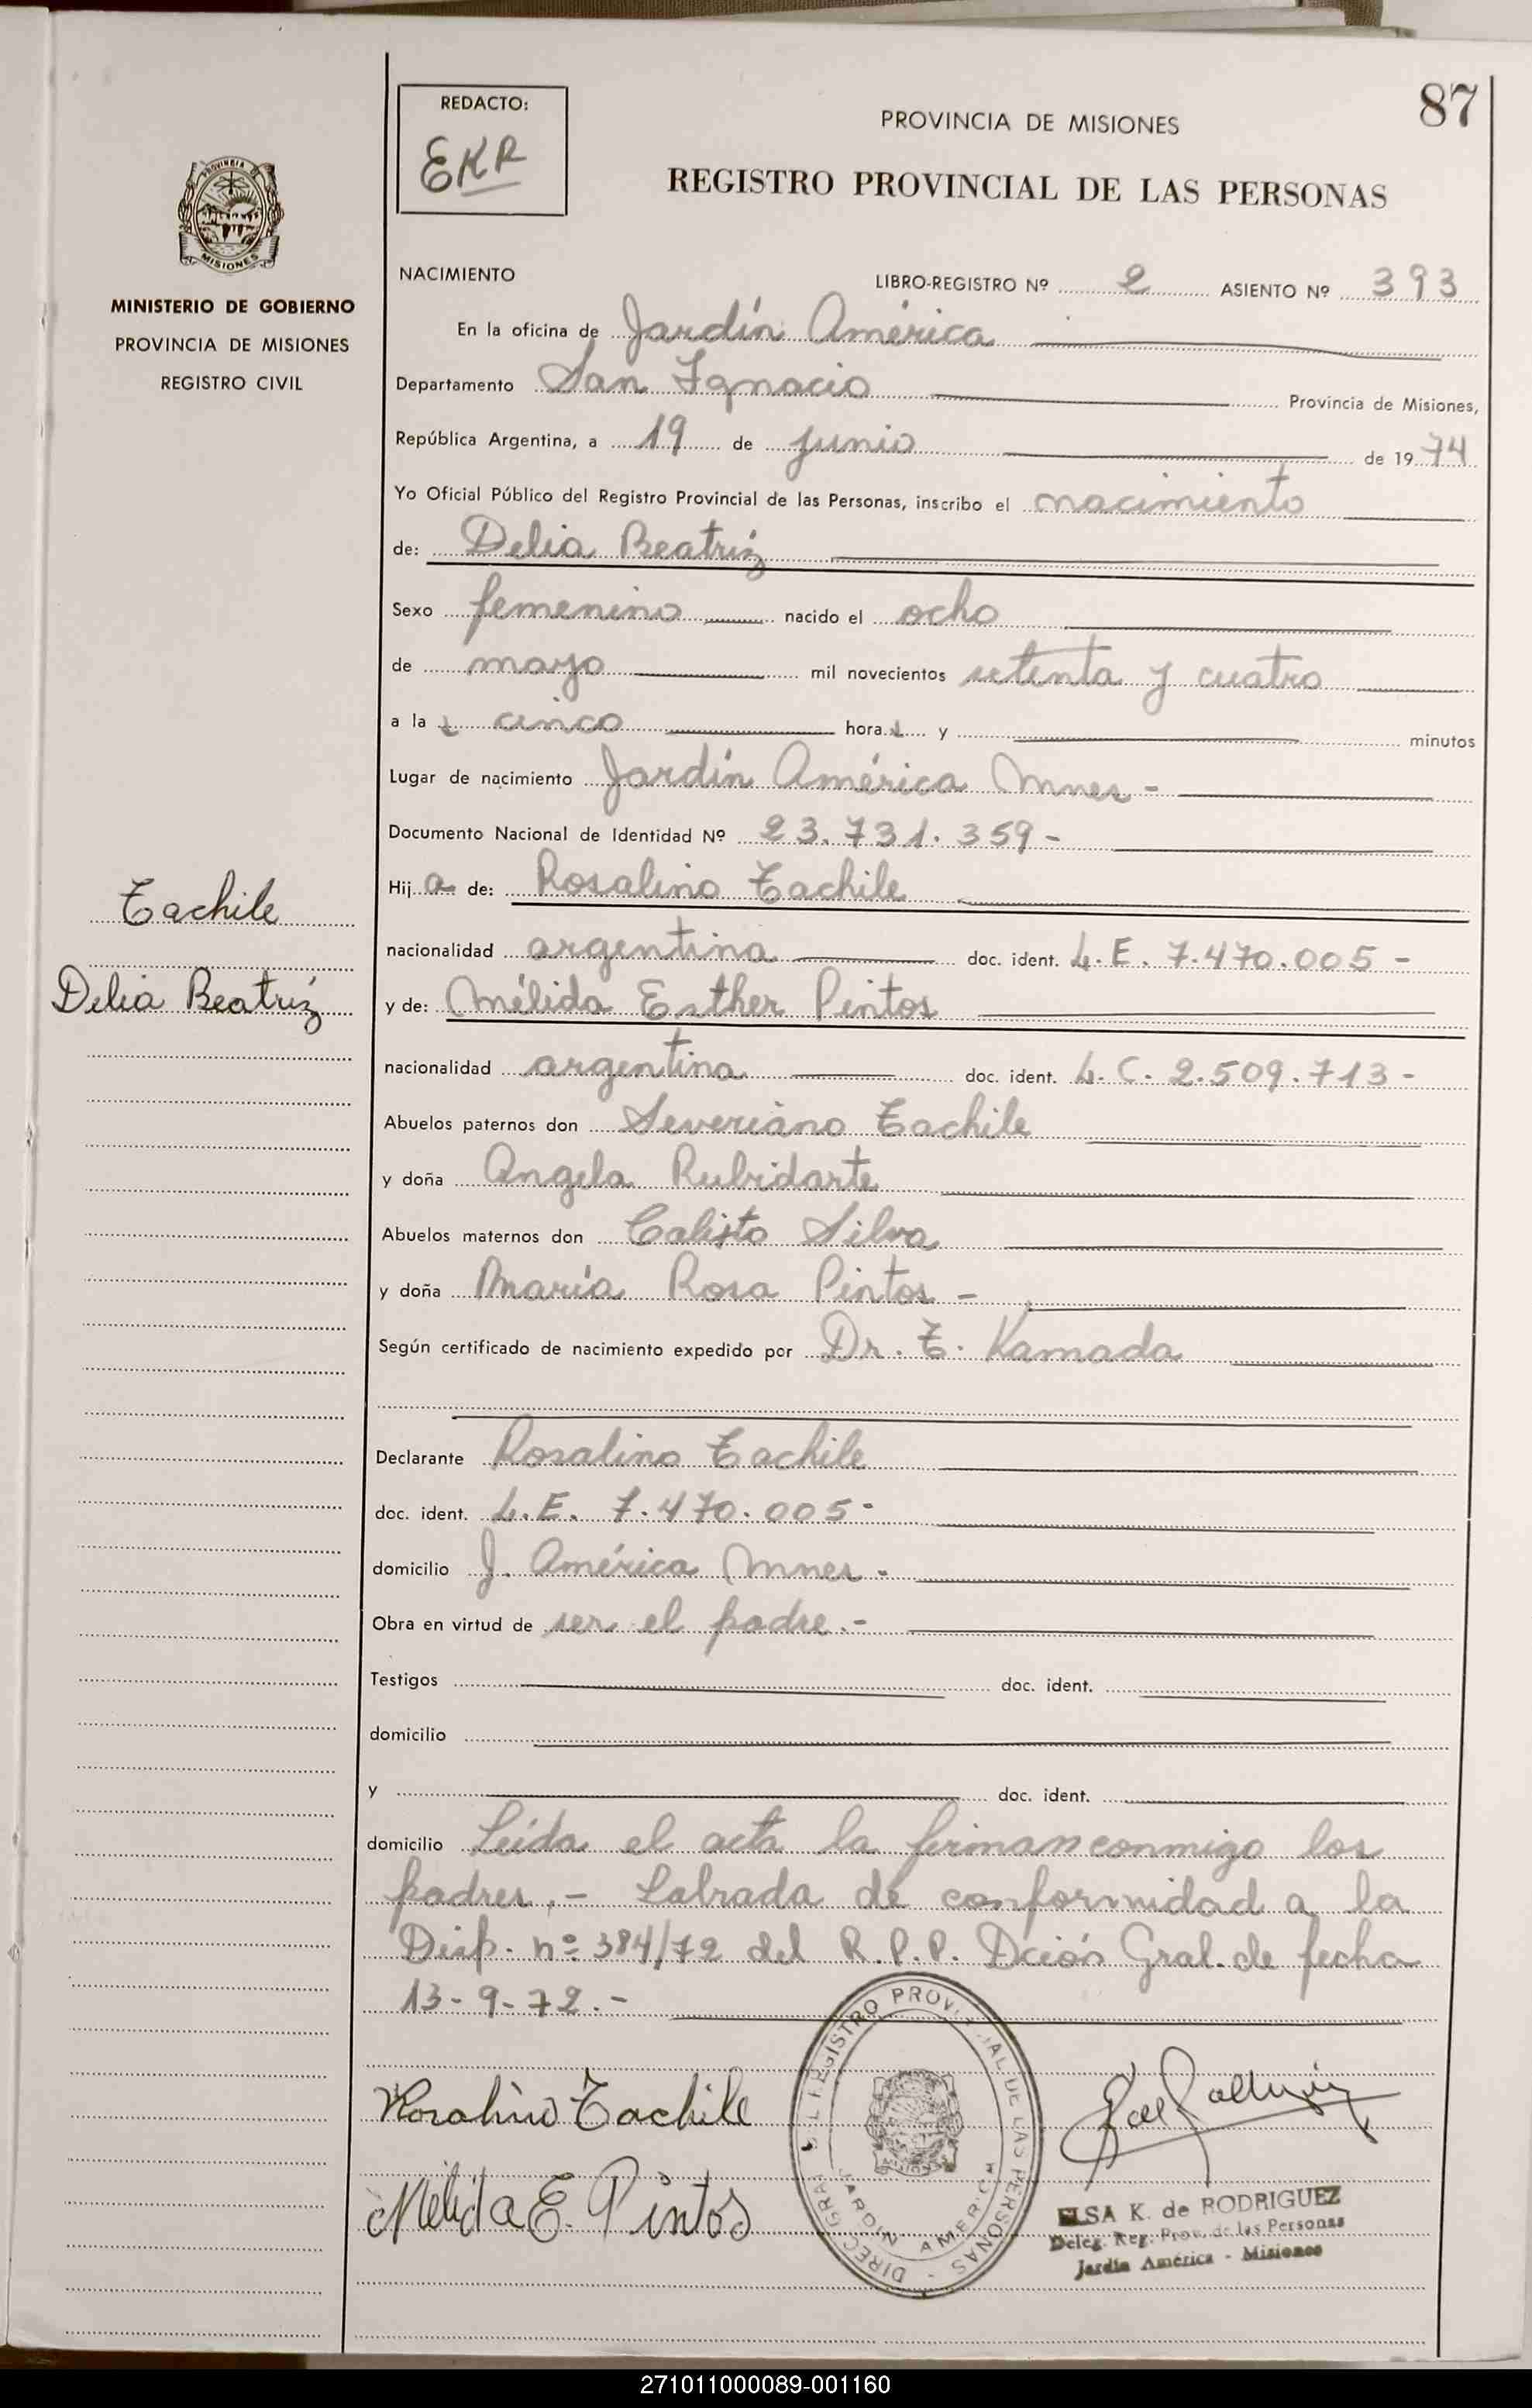 87
REDACTO:
EKR
PROVINCIA DE MISIONES
REGISTRO PROVINCIAL DE LAS PERSONAS
PROVINCIA DE
MISIONES
MINISTERIO DE GOBIERNO
PROVINCIA DE MISIONES
REGISTRO CIVIL
NACIMIENTO LIBRO-REGISTRO Nº 2 ASIENTO Nº 393
En la oficina de Jardín América
Departamento San Ignacio Provincia de Misiones,
República Argentina, a 19 de junio de 1974
Yo Oficial Público del Registro Provincial de las Personas, inscribo el nacimiento
de: Delia Beatriz
Sexo femenino nacido el ocho
de mayo mil novecientos setenta y cuatro
a las cinco horas y minutos
Lugar de nacimiento Jardín América Mnes -
Documento Nacional de Identidad Nº 23.731.359-
Hija de: Rosalino Tachile
Tachile
nacionalidad argentina doc. ident. L.E. 7.470.005 -
Delia Beatriz
y de: Mélida Esther Pintos
nacionalidad argentina doc. ident. L.C. 2.509.713-
Abuelos paternos don Severiano Tachile
y doña Angela Rubidarte
Abuelos maternos don Calisto Silva
y doña María Rosa Pintos -
Según certificado de nacimiento expedido por Dr. T. Kamada
Declarante Rosalino Tachile
doc. ident. L.E. 7.470.005-
domicilio J. América Mnes -
Obra en virtud de ser el padre.-
Testigos doc. ident.
domicilio
y doc. ident.
domicilio Leída el acta la firman conmigo los
padres.- Labrada de conformidad a la
Disp. nº 384/72 del R.P.P. Dción Gral. de fecha
13-9-72.-
Rosalino Tachile
Mélida E. Pintos
REGISTRO PROVINCIAL DE LAS PERSONAS - DIREC. GRAL.
JARDIN AMERICA
ELSA K. de RODRIGUEZ
Deleg. Reg. Prov. de las Personas
Jardín América - Misiones
271011000089-001160